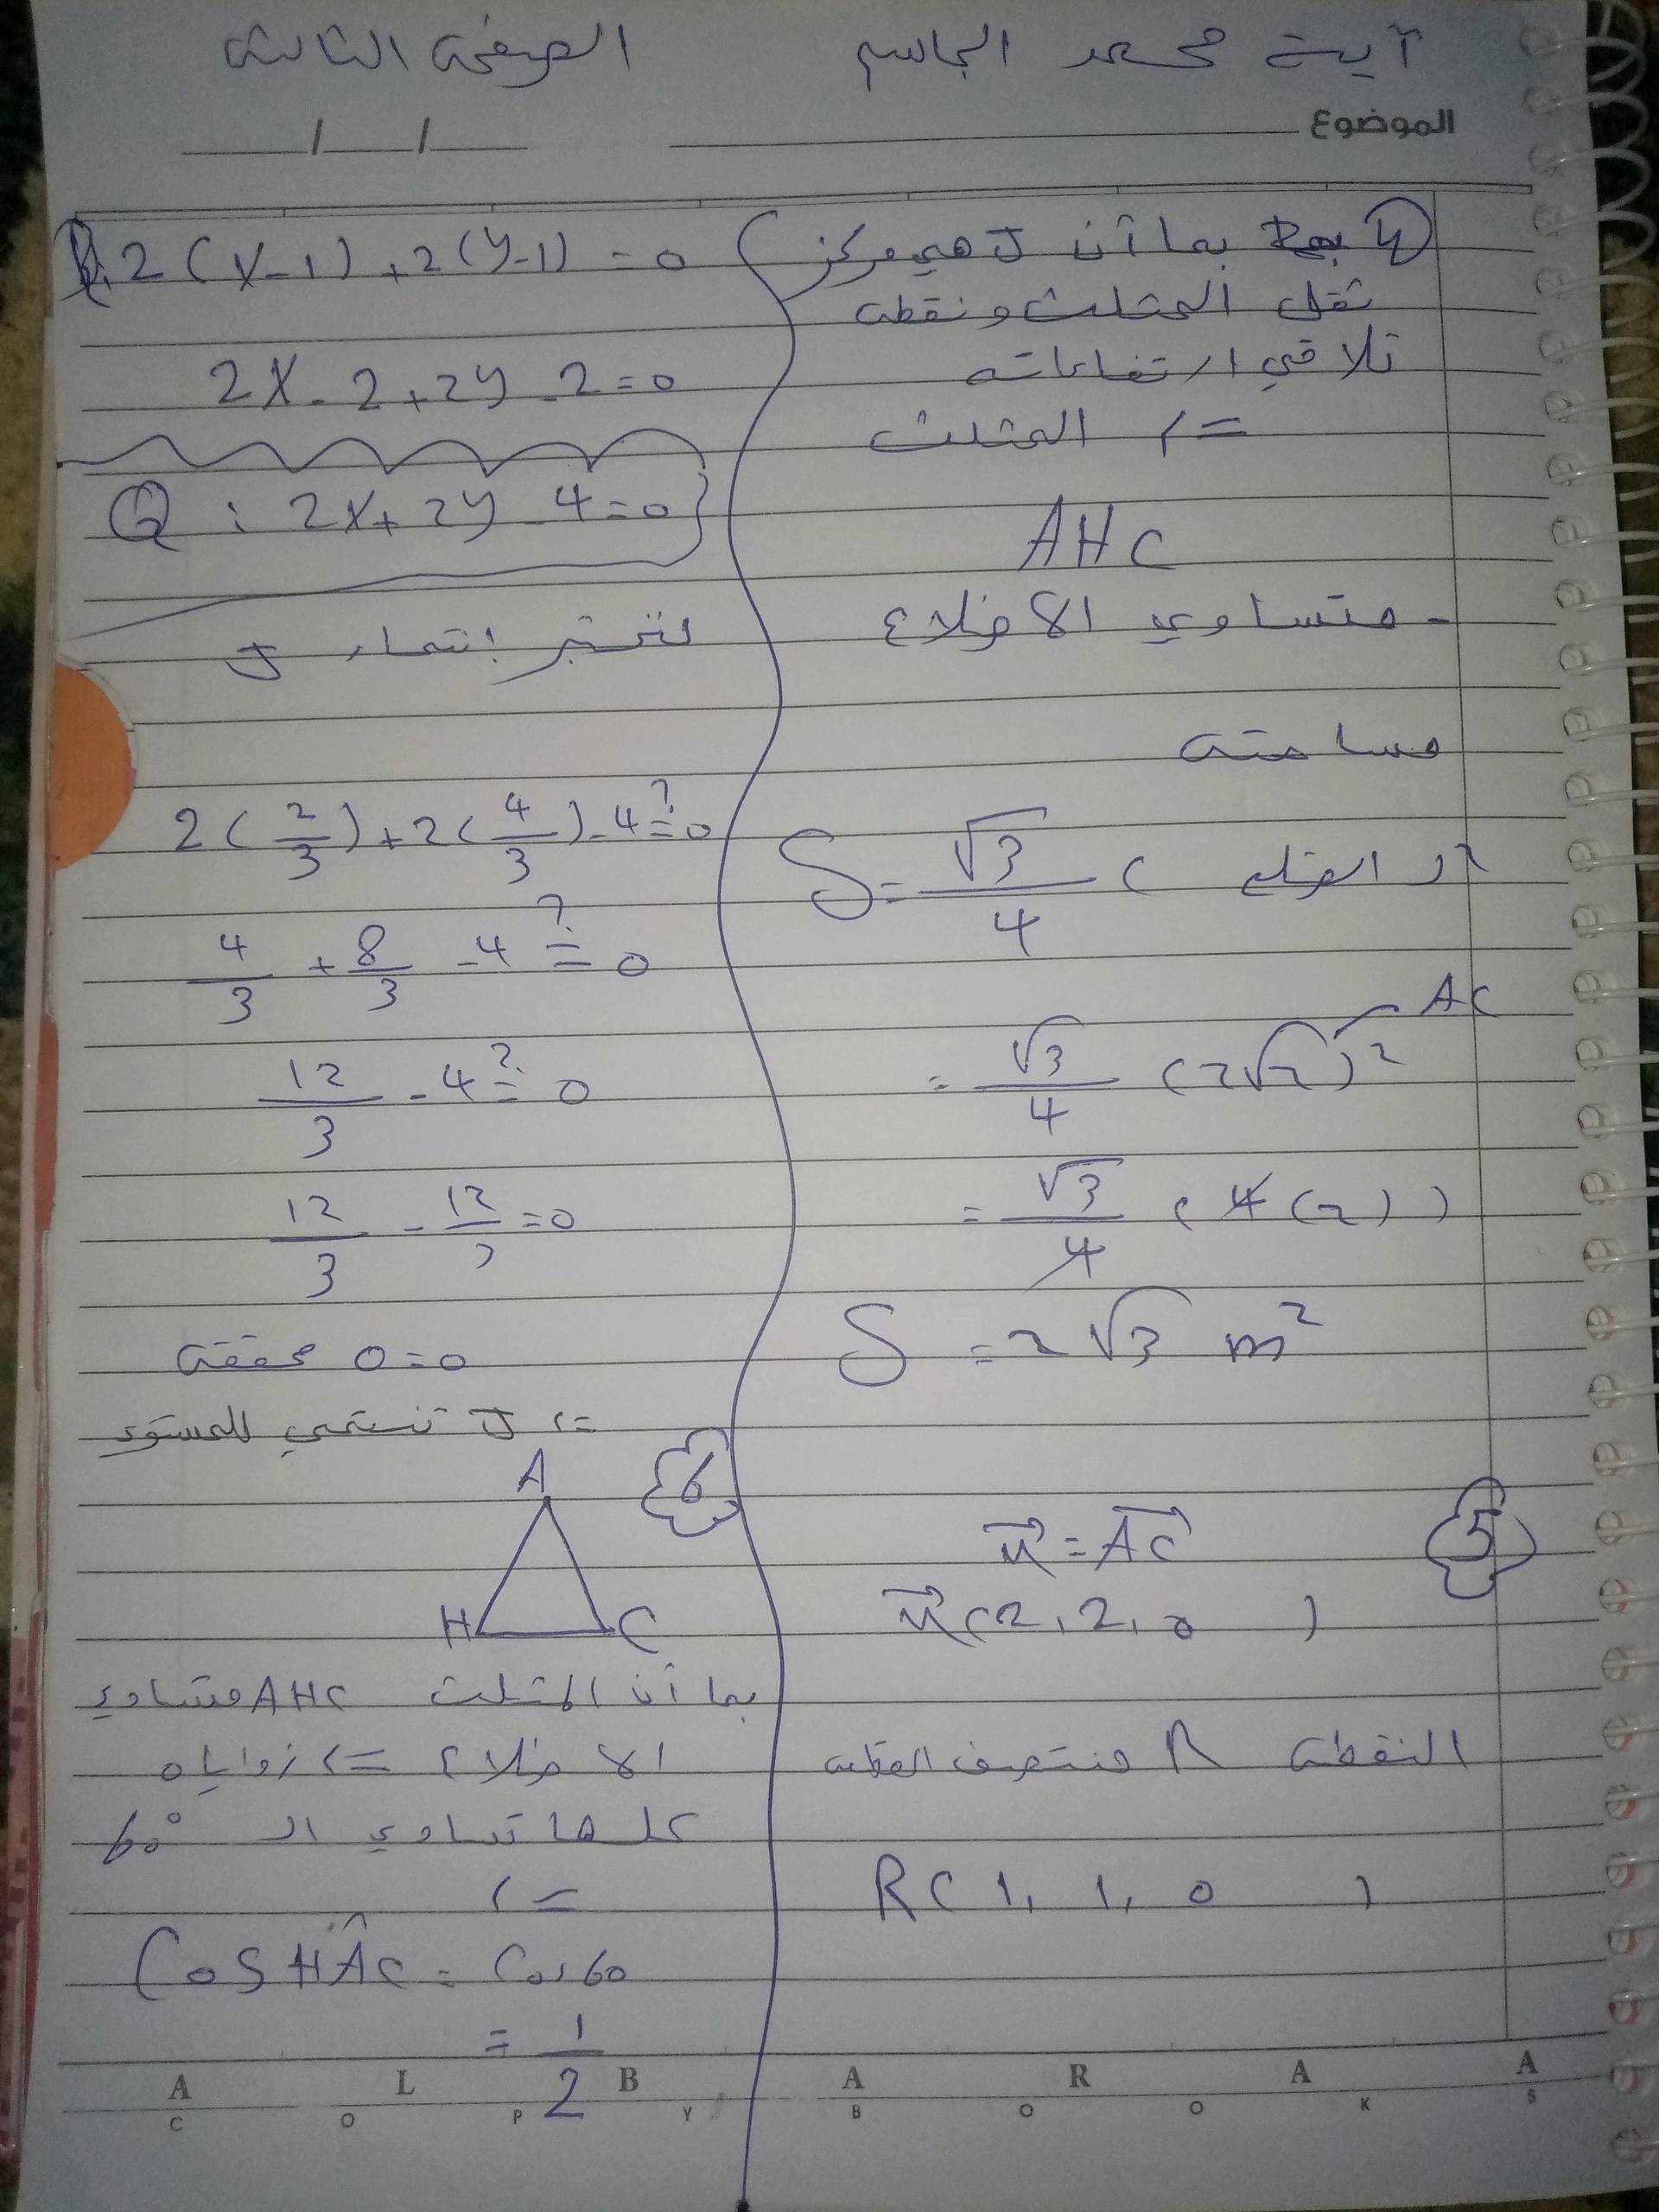 آية محمد الجاسم
الصفحة الثالثة
الموضوع
/ /
4) بما أن J هي مركز
ثقل المثلث ونقطة
تلاقي ارتفاعاته
=> المثلث
AHC
- متساوي الاضلاع
مساحته
S = √3/4 ( الضلع
AC
= √3/4 (2√2)²
= √3/4 (4(2))
S = 2√3 m²
5
u⃗ = AC⃗
u⃗ (2, 2, 0)
النقطة R منتصف القطعة
R(1, 1, 0)
2(x-1)+2(y-1)=0
2x-2+2y-2=0
Q : 2x+2y-4=0
لنختبر انتماء J
2(2/3)+2(4/3)-4 ?= 0
4/3 + 8/3 - 4 ?= 0
12/3 - 4 ?= 0
12/3 - 12/3 = 0
0=0 محققة
=> J تنتمي للمستوي
6
A
H C
بما أن المثلث AHC متساوي
الاضلاع => زواياه
كلها تساوي الـ 60°
=>
Cos HÂC = Cos 60
= 1/2
A L B A R A A
C O P Y B O O K S